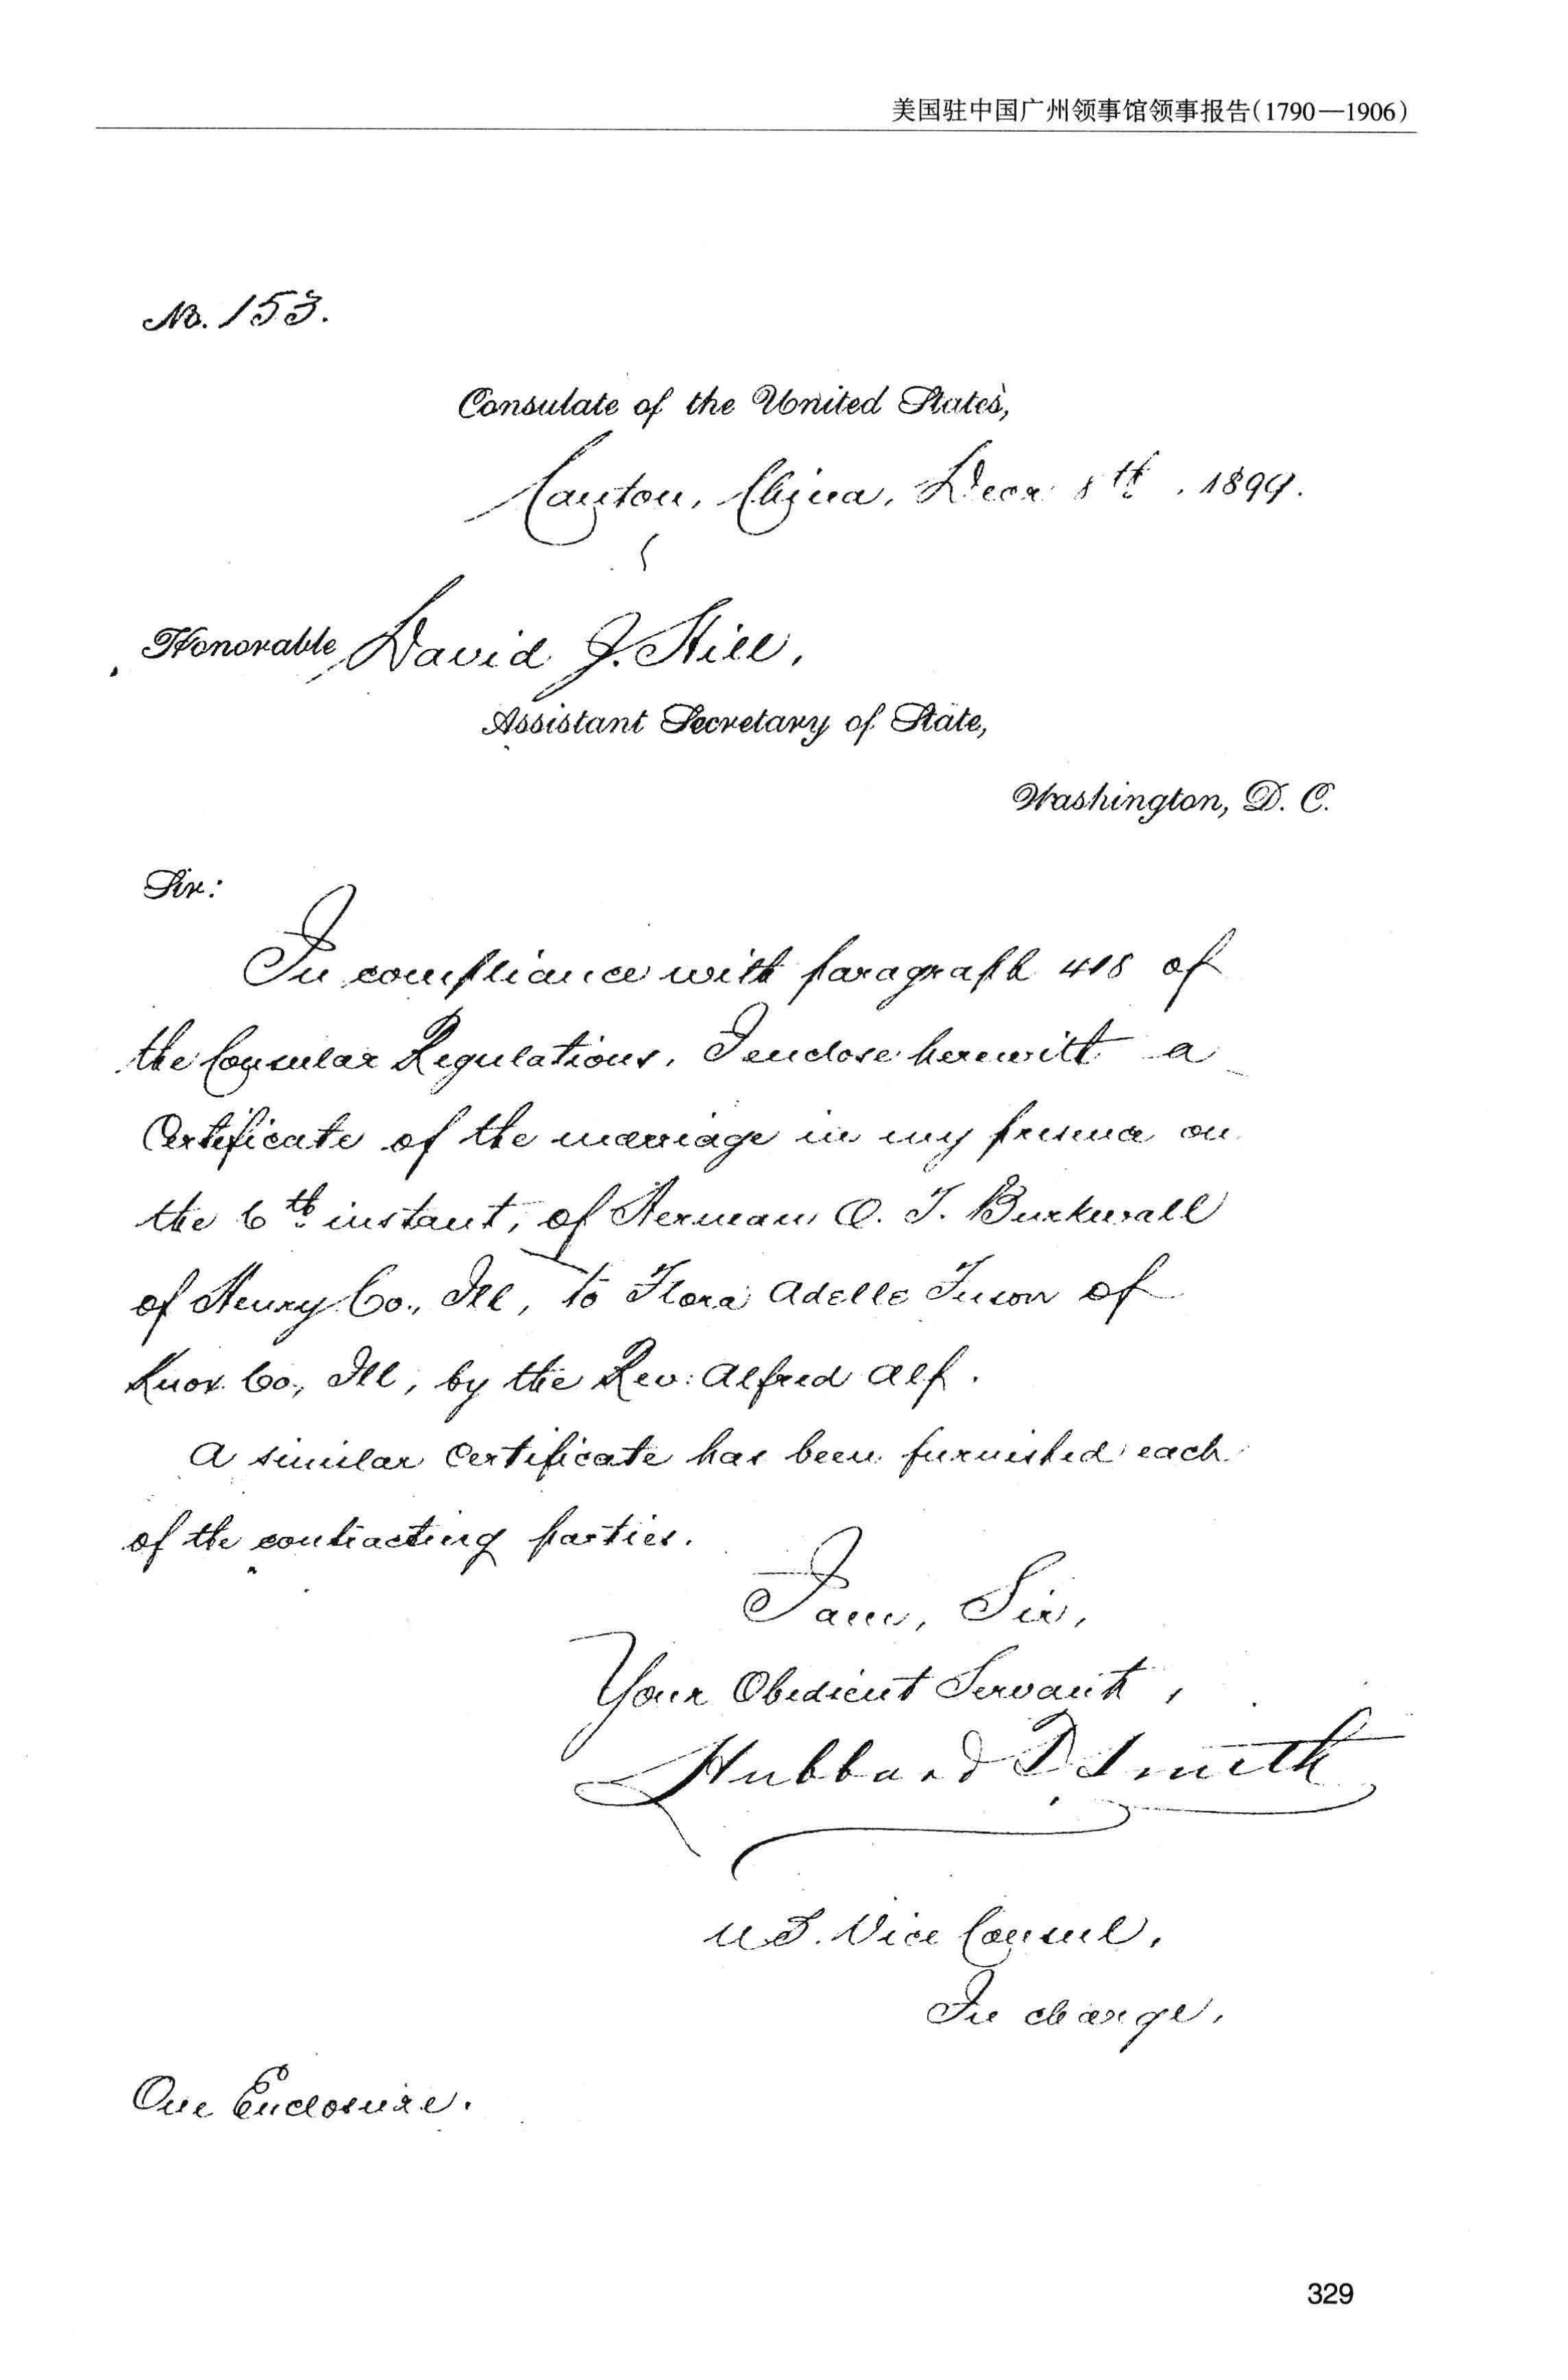 美国驻中国广州领事馆领事报告(1790—1906)
No. 153.
Consulate of the United States,
Canton, China, Decr 8th, 1899.
Honorable David J. Hill,
Assistant Secretary of State,
Washington, D. C.
Sir:
In compliance with paragraph 418 of
the Consular Regulations, I enclose herewith a
Certificate of the marriage in my presence on
the 6th instant, of Herman O. T. Burkwall
of Henry Co., Ill, to Flora Adelle Tuson of
Knox Co., Ill, by the Rev: Alfred Alf.
A similar Certificate has been furnished each
of the contracting parties.
I am, Sir,
Your Obedient Servant,
Hubbard T. Smith
U.S. Vice Consul,
In charge,
One Enclosure.
329